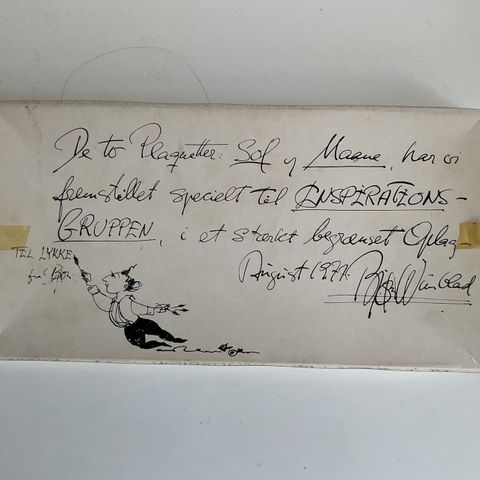 De to Plaquetter: Sol og Maane, har vi
fremstillet specielt til INSPIRATIONS-
GRUPPEN, i et stærkt begrænset Oplag
August 1971. Bjørn Wiinblad
TIL LYKKE
fra Bjørn
!